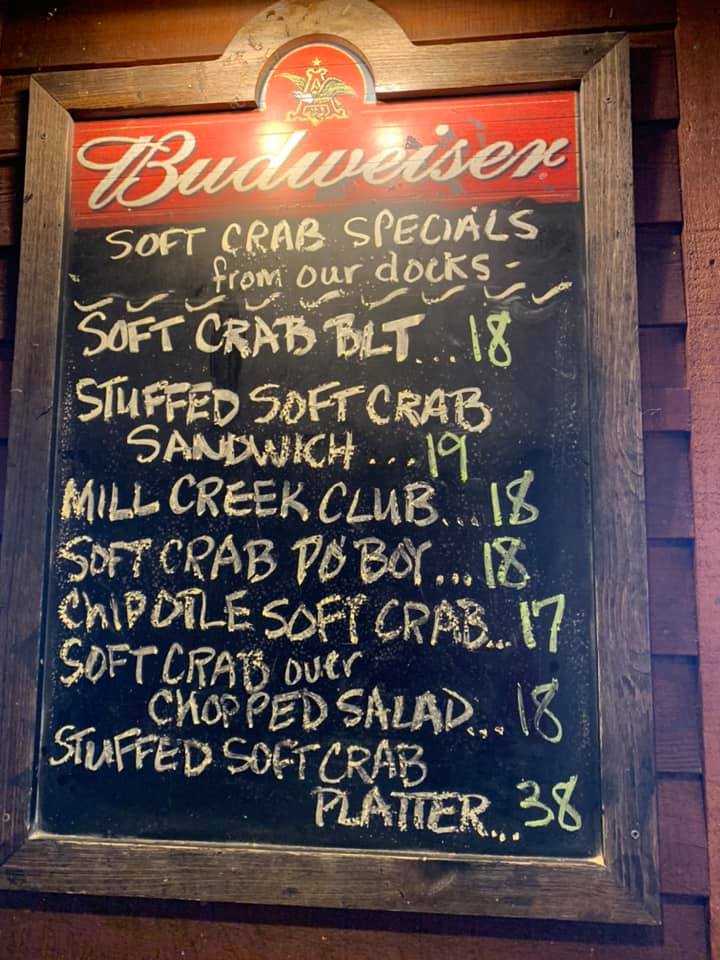 Budweiser
SOFT CRAB SPECIALS
from our docks -
SOFT CRAB BLT... 18
STUFFED SOFT CRAB
SANDWICH ... 19
MILL CREEK CLUB... 18
SOFT CRAB PO BOY... 18
CHIPOTLE SOFT CRAB... 17
SOFT CRAB over
CHOPPED SALAD... 18
STUFFED SOFT CRAB
PLATTER... 38